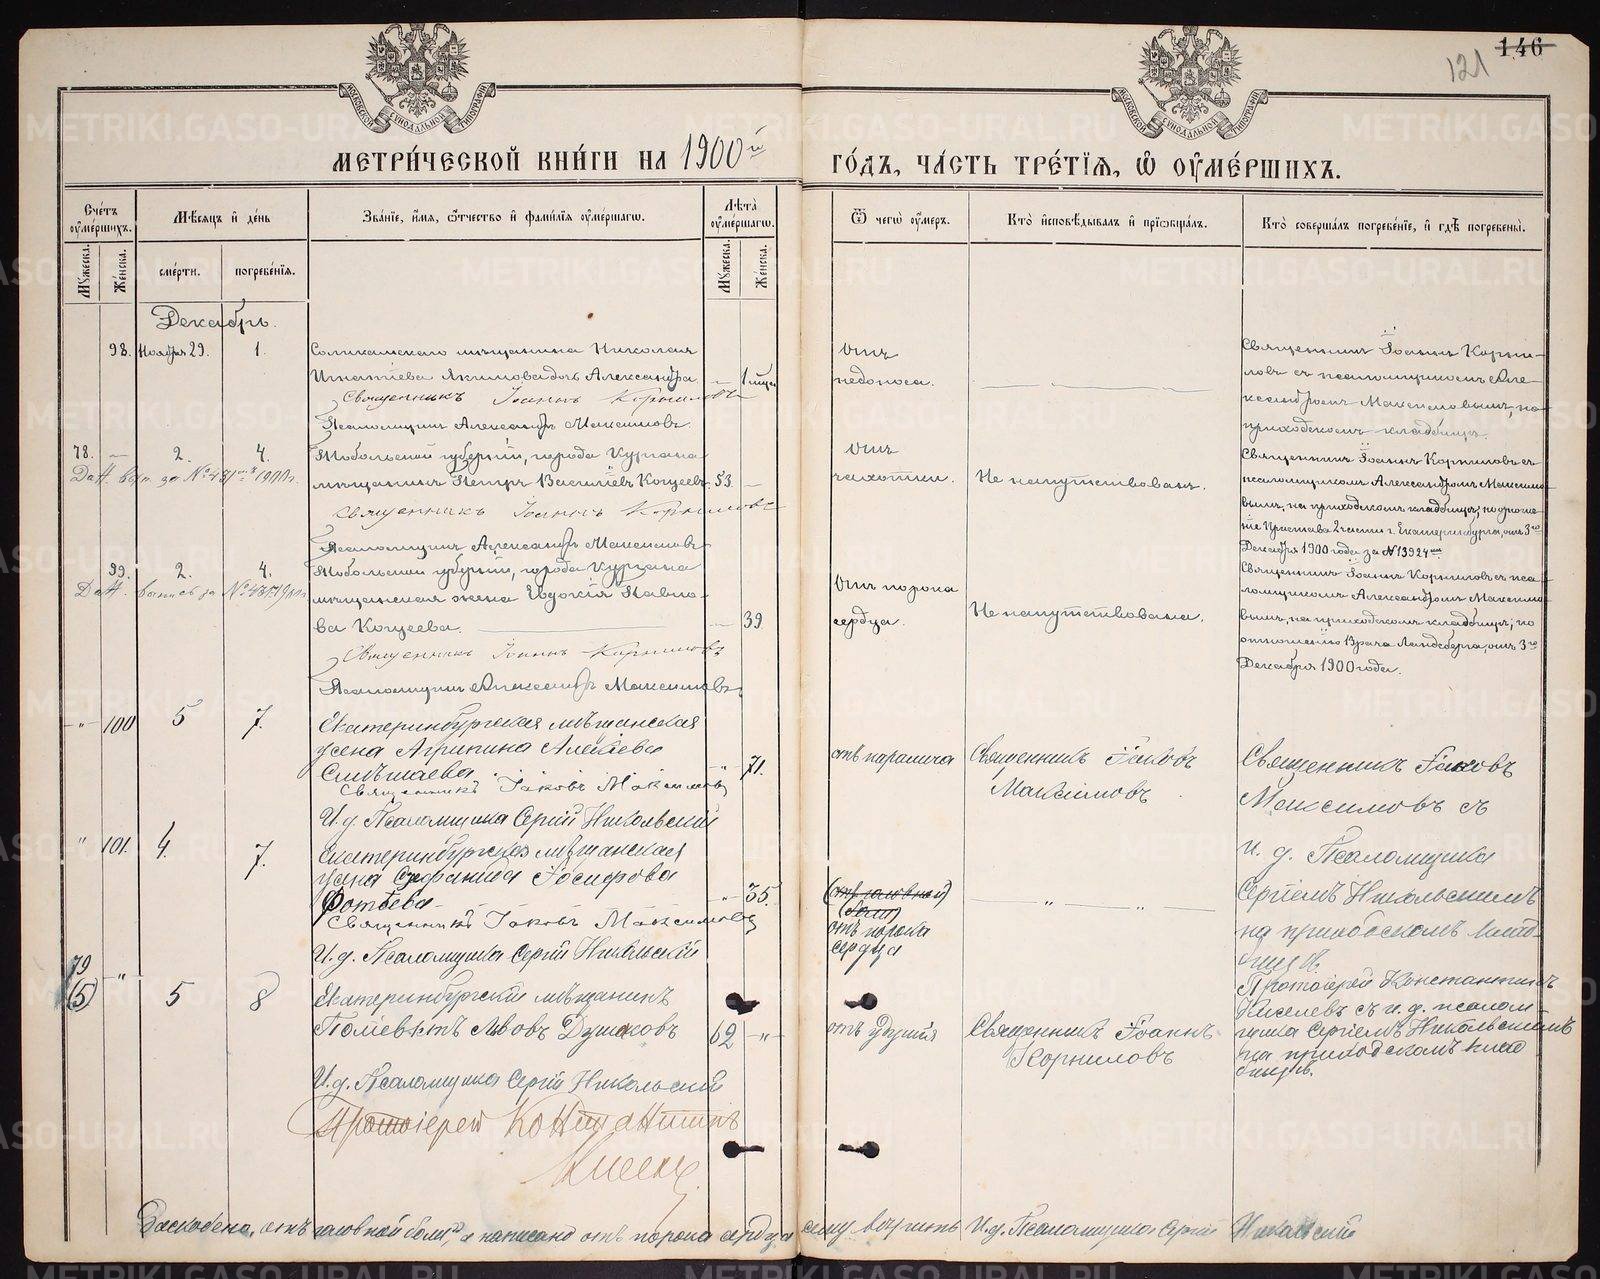 146
121
МОСКОВСКОЙ СѴНОДАЛЬНОЙ ТИПОГРАФІИ
МОСКОВСКОЙ СѴНОДАЛЬНОЙ ТИПОГРАФІИ
МЕТРИ́ЧЕСКОЙ КНИ́ГИ НА 1900й ГО́ДЪ, ЧА́СТЬ ТРЕ́ТІЯ, Ѡ҆ ОУ҆МЕ́РШИХЪ.
Сче́тъ оу҆ме́ршихъ.
Мѣ́сяцъ и҆ де́нь
Зва́нїе, и҆́мя, ѻ҆́тчество и҆ фами́лїя оу҆ме́ршагѡ.
Лѣ́та оу҆ме́ршагѡ.
Ѿ чегѡ̀ оу҆́меръ.
Кто̀ и҆сповѣ́дывалъ и҆ прїѡбща́лъ.
Кто̀ соверша́лъ погребе́нїе, и҆ гдѣ̀ погребены̀.
Мꙋ́жеска.
Же́нска.
сме́рти.
погребе́нїя.
Мꙋ́жеска.
Же́нска.
Декабрь.
98. Ноября 29. 1.
Соликамскаго мѣщанина Николая
Игнатіева Якимова дочь Александра
Священникъ Іоаннъ Корниловъ
Псаломщикъ Александръ Максимовъ.
отъ
недоноса.
Священникъ Іоаннъ Корни-
ловъ съ псаломщикомъ Але-
ксандромъ Максимовымъ, на
приходскомъ кладбищѣ.
78. — 2. 4.
Тобольской губерніи, города Кургана
мѣщанинъ Петръ Василіевъ Кощеевъ. 53 —
Священникъ Іоаннъ Корниловъ
Псаломщикъ Александръ Максимовъ
отъ
чахотки.
Не напутствованъ.
Священникъ Іоаннъ Корниловъ съ
псаломщикомъ Александромъ Максимо-
вымъ, на приходскомъ кладбищѣ,
Пристава 2 части г. Екатеринбурга, отъ 3го
Декабря 1900 года за № 13924мъ
99. 2. 4.
Тобольской губерніи, города Кургана
мѣщанская жена Евдокія Павло-
ва Кощеева. 39
Священникъ Іоаннъ Корниловъ
Псаломщикъ Александръ Максимовъ
отъ порока
сердца.
Не напутствована.
Священникъ Іоаннъ Корниловъ съ пса-
ломщикомъ Александромъ Максимо-
вымъ, на приходскомъ кладбищѣ, по
отношенію Врача Ландсберга, отъ 3го
Декабря 1900 года.
-"- 100 5 7.
Екатеринбургская мѣщанская
жена Агрипина Алексѣева
71.
Священникъ Іаковъ Максимовъ
И. д. Псаломщика Сергій Никольскій
отъ паралича
Священникъ Іаковъ
Максимовъ
Священникъ Іаковъ
Максимовъ съ
и. д. Псаломщика
Сергіемъ Никольскимъ
на приходскомъ клад-
бищѣ.
" 101. 4. 7.
Екатеринбургская мѣщанская
жена Іосифова
Фотѣева 35.
Священникъ Іаковъ Максимовъ
И. д. Псаломщика Сергій Никольскій
(отъ головной
боли)
отъ порока
сердца
79
(5) " 5 8
Екатеринбургскій мѣщанинъ
Поліевктъ Львовъ 62 -"-
И. д. Псаломщика Сергій Никольскій
Протоіерей Константинъ
отъ удушія
Священникъ Іоаннъ
Корниловъ
Протоіерей Константинъ
Киселевъ съ и. д. псалом-
щика Сергіемъ Никольскимъ
на приходскомъ клад-
бищѣ.
отъ головной боли", а написано отъ порока сердца вѣрить И. д. Псаломщика Сергій Никольскій
METRIKI.GASO-URAL.RU